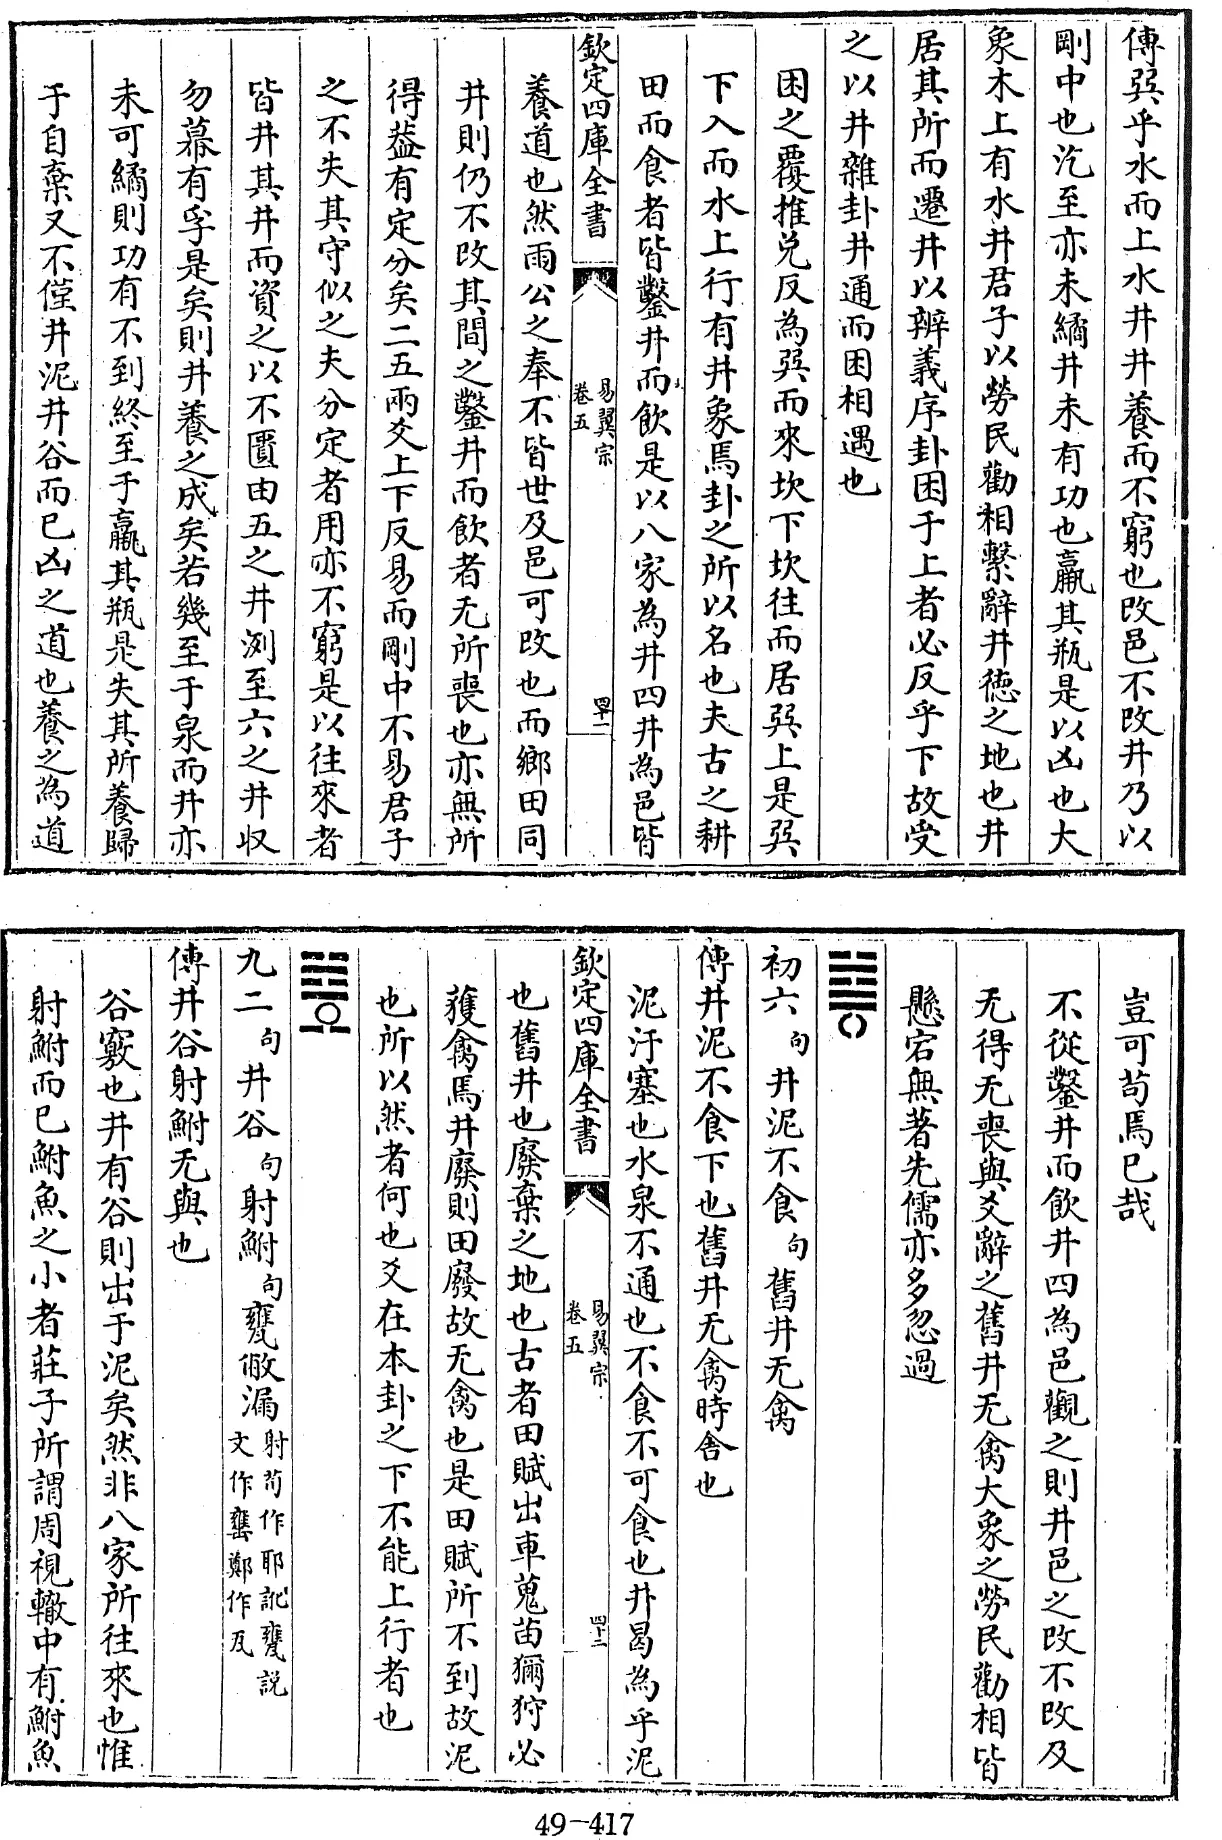 傳巽乎水而上水井井養而不窮也改邑不改井乃以
剛中也汔至亦未繘井未有功也羸其瓶是以凶也大
象木上有水井君子以勞民勸相繫辭井德之地也井
居其所而遷井以辨義序卦困于上者必反乎下故受
之以井雜卦井通而困相遇也
困之覆推兌反為巽而來坎下坎往而居巽上是巽
下入而水上行有井象焉卦之所以名也夫古之耕
田而食者皆鑿井而飲是以八家為井四井為邑皆
欽定四庫全書
易翼宗
卷五
四十一
養道也然雨公之奉不皆世及邑可改也而鄉田同
井則仍不改其間之鑿井而飲者无所喪也亦無所
得葢有定分矣二五兩爻上下反易而剛中不易君子
之不失其守似之夫分定者用亦不窮是以往來者
皆井其井而資之以不匱由五之井洌至六之井収
勿幕有孚是矣則井養之成矣若幾至于泉而井亦
未可繘則功有不到終至于羸其瓶是失其所養歸
于自棄又不僅井泥井谷而已凶之道也養之為道
豈可苟焉已哉
不從鑿井而飲井四為邑觀之則井邑之改不改及
无得无喪與爻辭之舊井无禽大象之勞民勸相皆
懸宕無著先儒亦多忽過
初六句井泥不食句舊井无禽
傳井泥不食下也舊井无禽時舍也
泥汙塞也水泉不通也不食不可食也井曷為乎泥
欽定四庫全書
易翼宗
卷五
四十二
也舊井也廢棄之地也古者田賦出車蒐苗獮狩必
獲禽焉井廢則田廢故无禽也是田賦所不到故泥
也所以然者何也爻在本卦之下不能上行者也
九二句井谷句射鮒句甕敝漏射荀作耶訛甕説
文作罋鄭作瓦
傳井谷射鮒无與也
谷竅也井有谷則出于泥矣然非八家所往來也惟
射鮒而已鮒魚之小者莊子所謂周視轍中有鮒魚
49-417